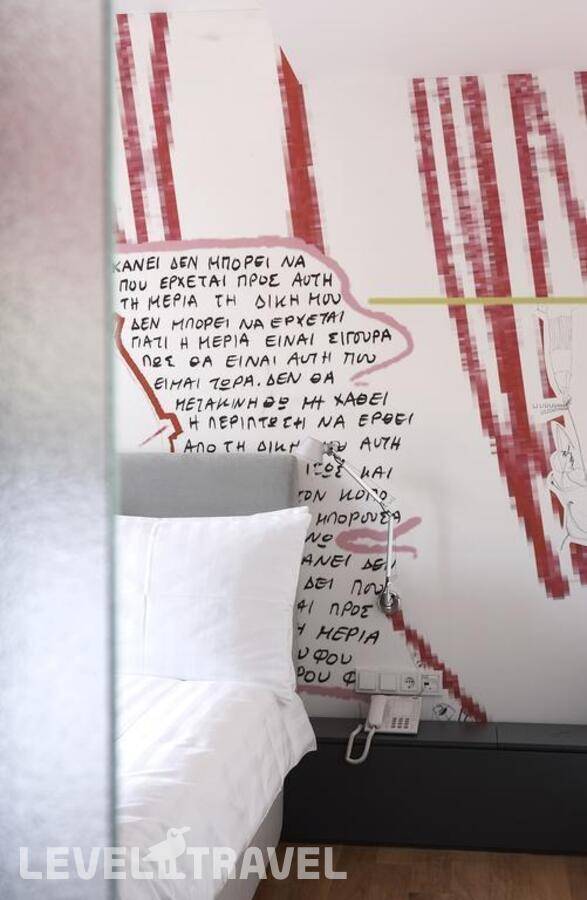 ΚΑΝΕΙ ΔΕΝ ΜΠΟΡΕΙ ΝΑ
ΠΟΥ ΕΡΧΕΤΑΙ ΠΡΟΣ ΑΥΤΗ
ΤΗ ΜΕΡΙΑ ΤΗ ΔΙΚΗ ΜΟΥ
ΔΕΝ ΜΠΟΡΕΙ ΝΑ ΕΡΧΕΤΑΙ
ΓΙΑΤΙ Η ΜΕΡΙΑ ΕΙΝΑΙ ΣΙΓΟΥΡΑ
ΠΩΣ ΘΑ ΕΙΝΑΙ ΑΥΤΗ ΠΟΥ
ΕΙΜΑΙ ΤΩΡΑ. ΔΕΝ ΘΑ
ΜΕΤΑΚΙΝΗΘΩ ΜΗ ΧΑΘΕΙ
Η ΠΕΡΙΠΤΩΣΗ ΝΑ ΕΡΘΕΙ
ΑΠΟ ΤΗ ΔΙΚΗ ΜΟΥ ΑΥΤΗ
ΚΑΙ
ΤΟΝ ΚΟΠΟ
ΜΠΟΡΟΥΣΑ
ΝΩ
ΑΝΕΙ ΔΕΝ
ΔΕΙ ΠΟΥ
ΑΙ ΠΡΟΣ
Η ΜΕΡΙΑ
Υ ΦΟΥ
ΡΟΥ Φ
LEVEL TRAVEL